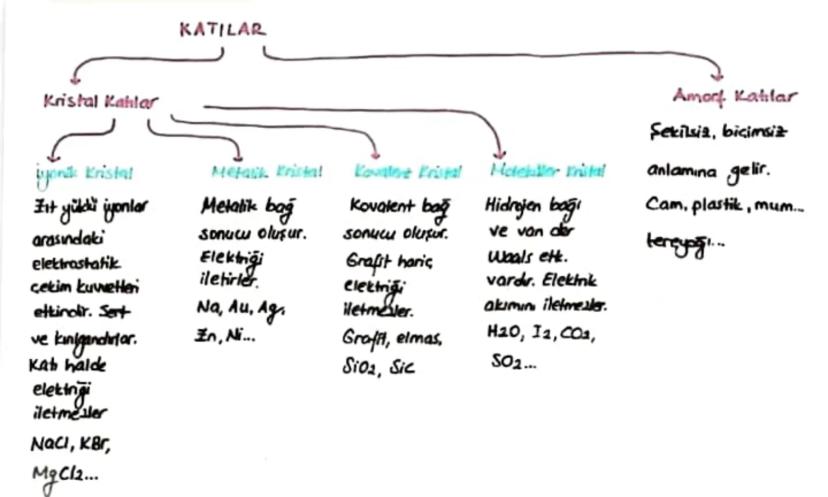 KATILAR
Kristal Katılar
Amorf Katılar
Şekilsiz, biçimsiz
anlamına gelir.
Cam, plastik, mum...
tereyağı...
İyonik Kristal
Zıt yüklü iyonlar
arasındaki
elektrostatik
çekim kuvvetleri
etkindir. Sert
ve kırılgandırlar.
Katı halde
elektriği
iletmezler
NaCl, KBr,
MgCl2...
Metalik Kristal
Metalik bağ
sonucu oluşur.
Elektriği
iletirler.
Na, Au, Ag,
Zn, Ni...
Kovalent Kristal
Kovalent bağ
sonucu oluşur.
Grafit hariç
elektriği
iletmezler.
Grafit, elmas,
SiO2, SiC
Moleküler Kristal
Hidrojen bağı
ve van der
Waals etk.
vardır. Elektrik
akımını iletmezler.
H2O, I2, CO2,
SO2...